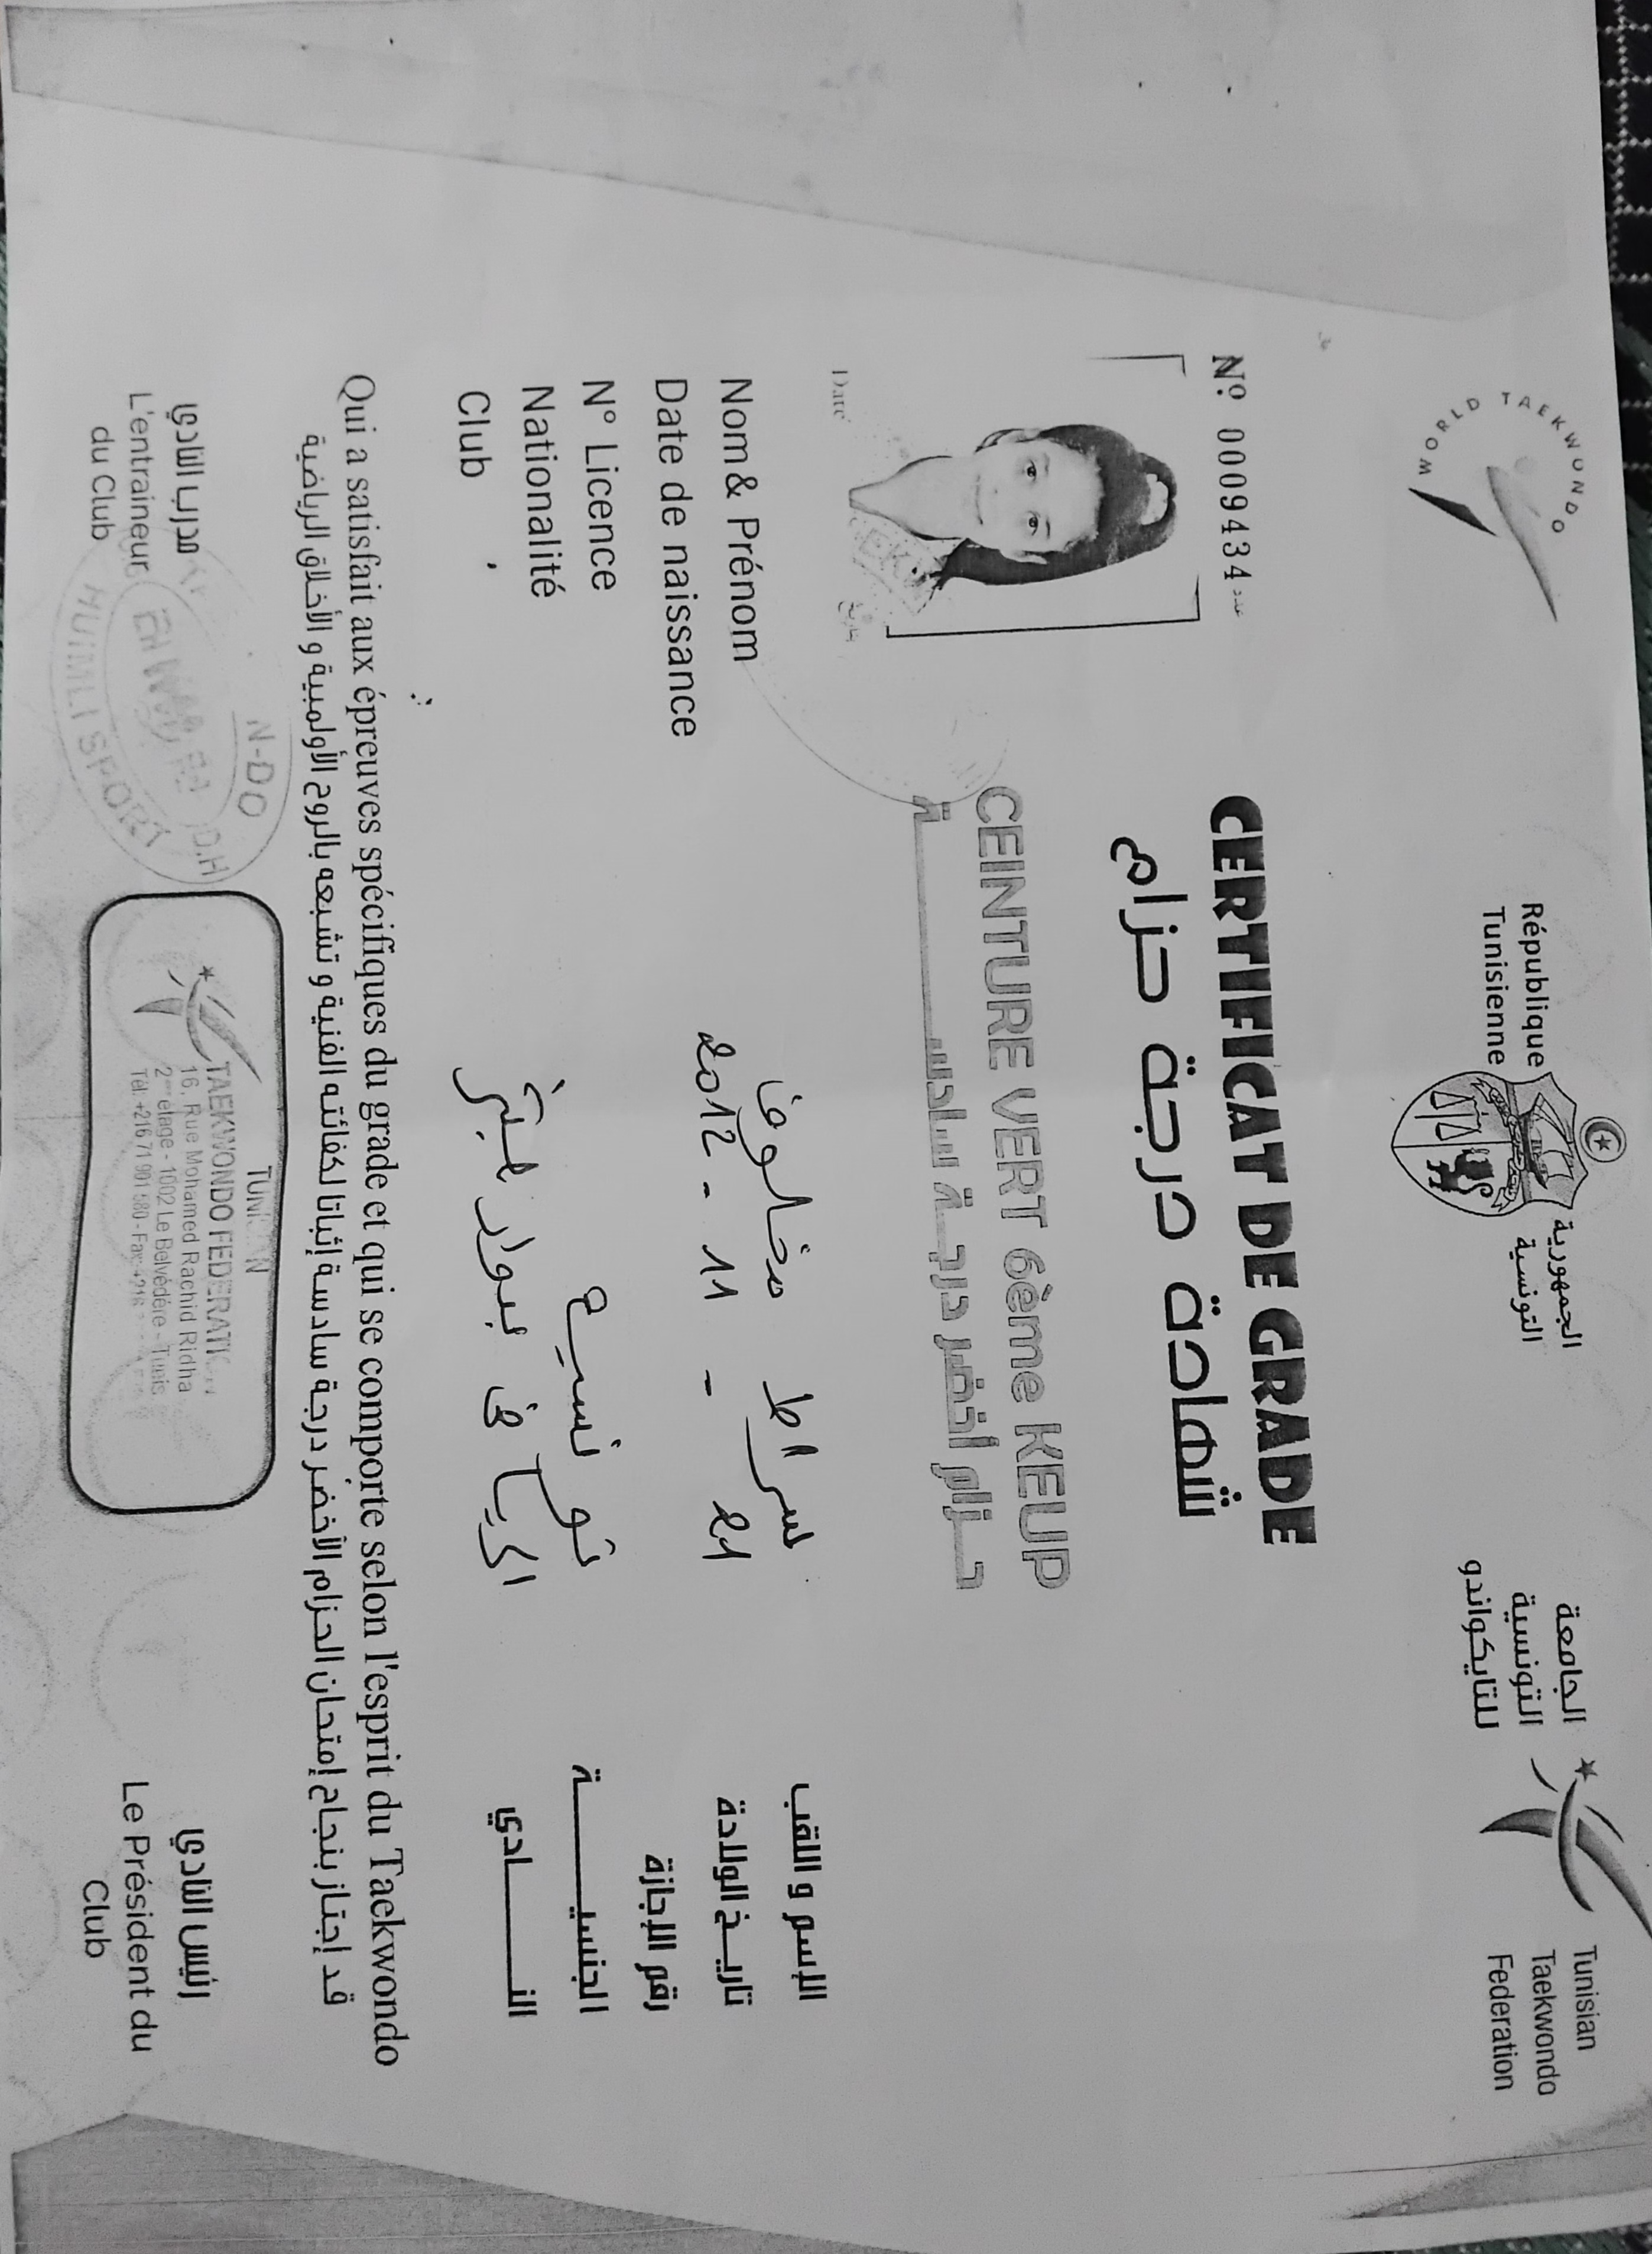 WORLD TAEKWONDO
République
Tunisienne
الجمهورية
التونسية
الجامعة
التونسية
للتايكواندو
Tunisian
Taekwondo
Federation
Nº 0009434 عدد
CERTIFICAT DE GRADE
شهادة درجة حزام
CEINTURE VERT 6ème KEUP
حـزام أخضر درجـة سادسـة
Date
تاريخ
Nom & Prénom سراط مخلوف الإسم و اللقب
Date de naissance 21 - 11 - 2012 تاريـخ الولادة
N° Licence رقم الإجازة
Nationalité الجنسيـة
Club النـادي
Qui a satisfait aux épreuves spécifiques du grade et qui se comporte selon l'esprit du Taekwondo
قد إجتاز بنجاح إمتحان الحزام الأخضر درجة سادسة إثباتا لكفائته الفنية و تشبعه بالروح الأولمبية و الأخلاق الرياضية
مدرب النادي
L'entraineur
du Club
N-DO
HUIMLI SPORT
TAEKWONDO FEDERATION
16, Rue Mohamed Rachid Ridha
2ème étage - 1002 Le Belvédère - Tunis
Tél: +216 71 991 580 - Fax: +216
رئيس النادي
Le Président du
Club